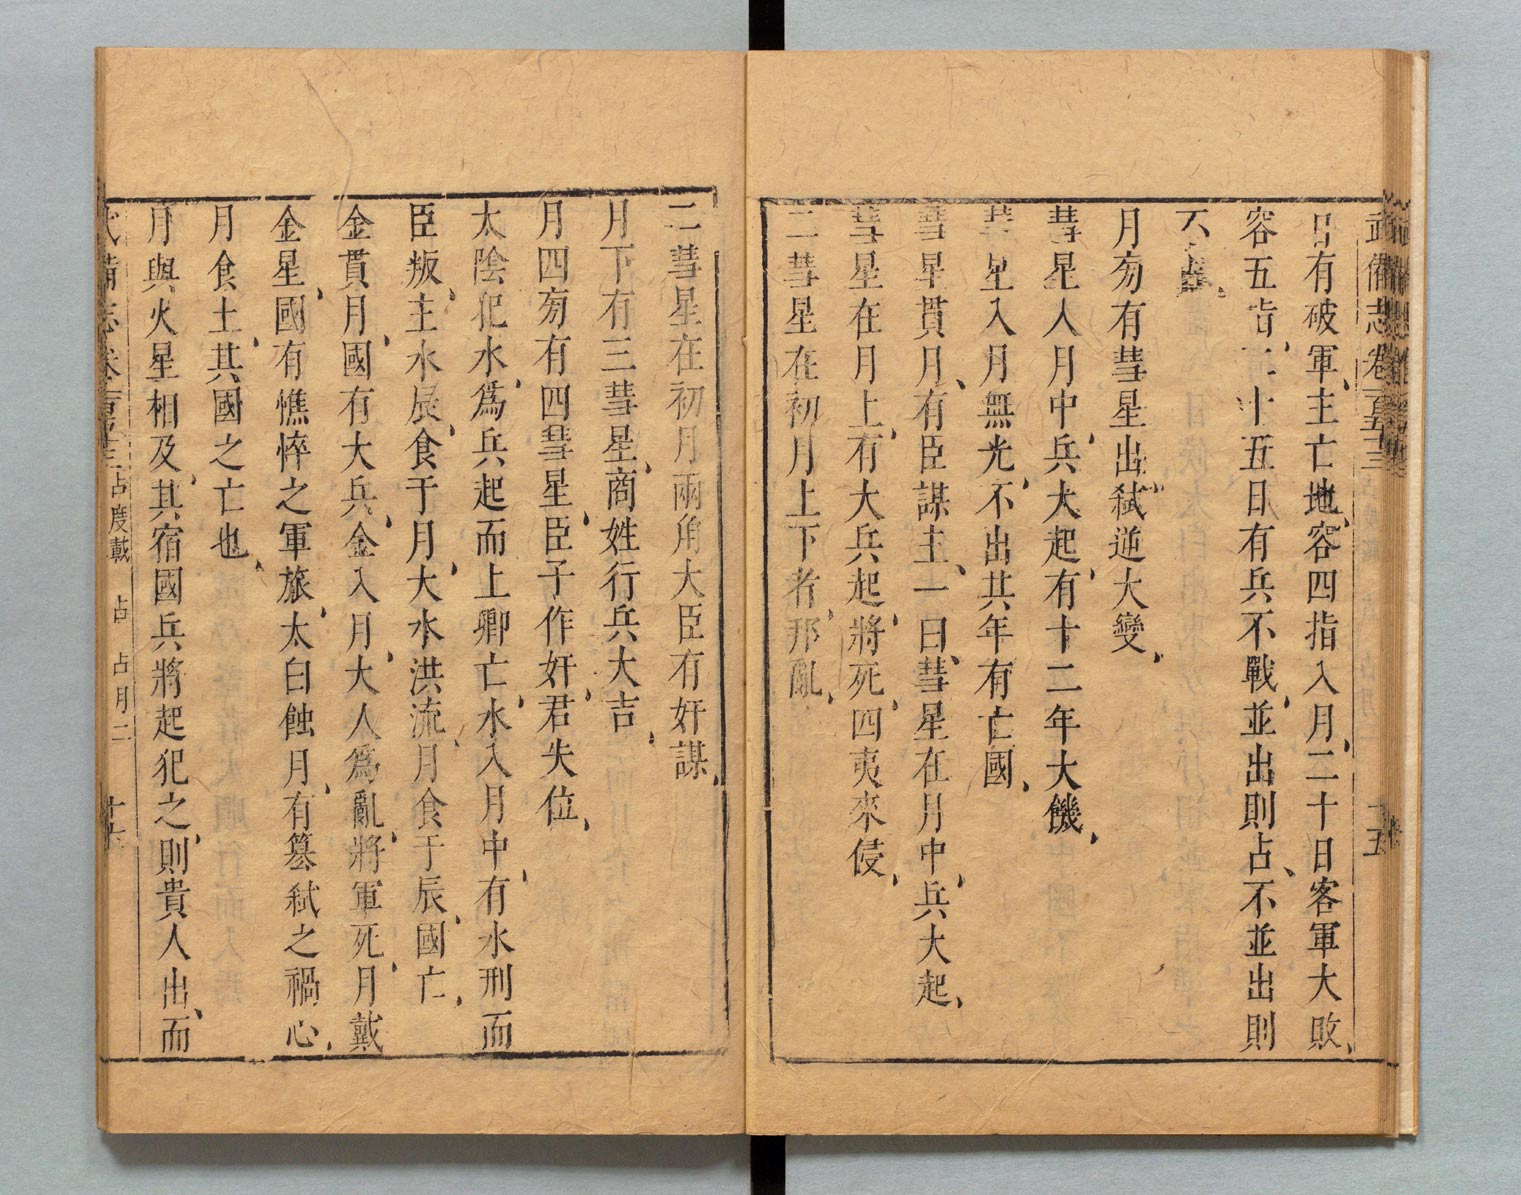 武備志卷一百五十三
日有破軍主亡地容四指入月二十日客軍大敗
容五指二十五日有兵不戰並出則占不並出則
不占
月旁有彗星出弑逆大變
彗星入月中兵大起有十二年大饑
彗星入月無光不出其年有亡國
彗星貫月有臣謀主一曰彗星在月中兵大起
彗星在月上有大兵起將死四夷來侵
二彗星在初月上下者邦亂
二彗星在初月兩角大臣有奸謀
月下有三彗星商姓行兵大吉
月四旁有四彗星臣子作奸君失位
太陰犯水為兵起而上卿亡水入月中有水刑而
臣叛主水辰食于月大水洪流月食于辰國亡
金貫月國有大兵金入月大人為亂將軍死月戴
金星國有憔悴之軍旅太白蝕月有篡弑之禍心
月食土其國之亡也
月與火星相及其宿國兵將起犯之則貴人出而
武備志卷一百五十三 占度載 占 占月二 十六